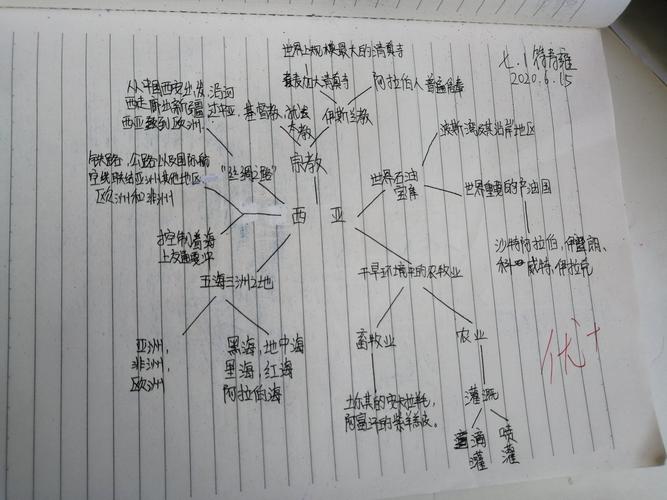 世界上规模最大的清真寺
七.1 符青雍
2020.6.15
麦加大清真寺
阿拉伯人普遍信奉
从中国西安出发,沿河
西走廊出新疆过中亚,
西亚致到欧洲.
基督教,犹太
教
伊斯兰教
宗教
"丝绸之路"
铁路,公路以及国际航
空线联结亚洲其他地区
欧洲和非洲
波斯湾及其沿岸地区
世界石油
宝库
世界重要的产油国
西 亚
控制着海
上交通要冲
五海三洲之地
干旱环境中的农牧业
沙特阿拉伯,伊朗,
科威特,伊拉克
亚洲,
非洲,
欧洲
黑海,地中海
里海,红海
阿拉伯海
畜牧业
农业
优+
土尔其的安卡拉羊毛,
阿富汗的紫羊羔皮。
灌溉
滴
灌
喷
灌